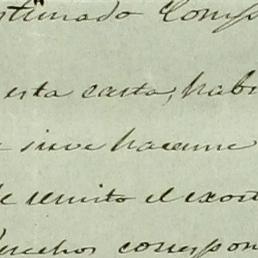 estimado Comp
esta carta, hab
sirve hacerme
remito el exort
derechos correspon